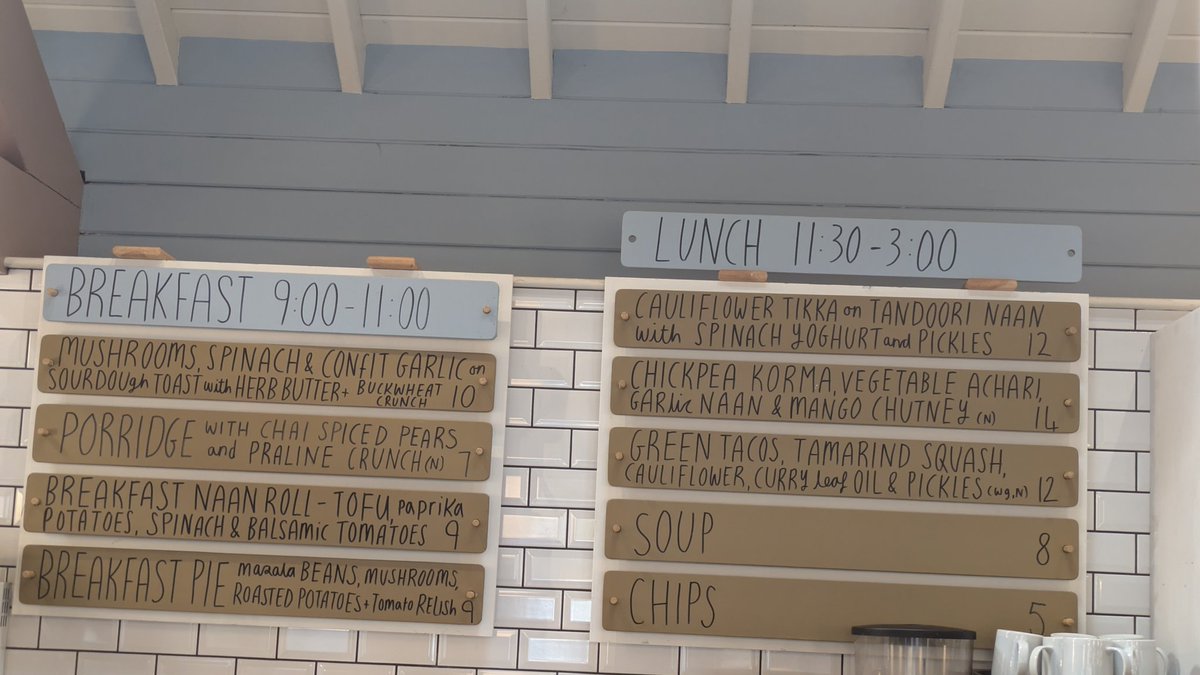 BREAKFAST 9:00-11:00
MUSHROOMS, SPINACH & CONFIT GARLIC on
SOURDOUgh TOAST with HERB BUTTER + BUCKWHEAT CRUNCH 10
PORRIDGE WITH CHAI SPICED PEARS
and PRALINE CRUNCH (N) 7
BREAKFAST NAAN ROLL - TOFU, paprika
POTATOES, SPINACH & BALSAMIC TOMATOES 9
BREAKFAST PIE masala BEANS, MUSHROOMS,
ROASTED POTATOES + Tomato RELISH 9
LUNCH 11:30-3:00
CAULIFLOWER TIKKA on TANDOORI NAAN
with SPINACH YOGHURT and PICKLES 12
CHICKPEA KORMA, VEGETABLE ACHARI,
GARLIC NAAN & MANGO CHUTNEY (N) 14
GREEN TACOS, TAMARIND SQUASH,
CAULIFLOWER, CURRY leaf OIL & PICKLES (wg,N) 12
SOUP 8
CHIPS 5